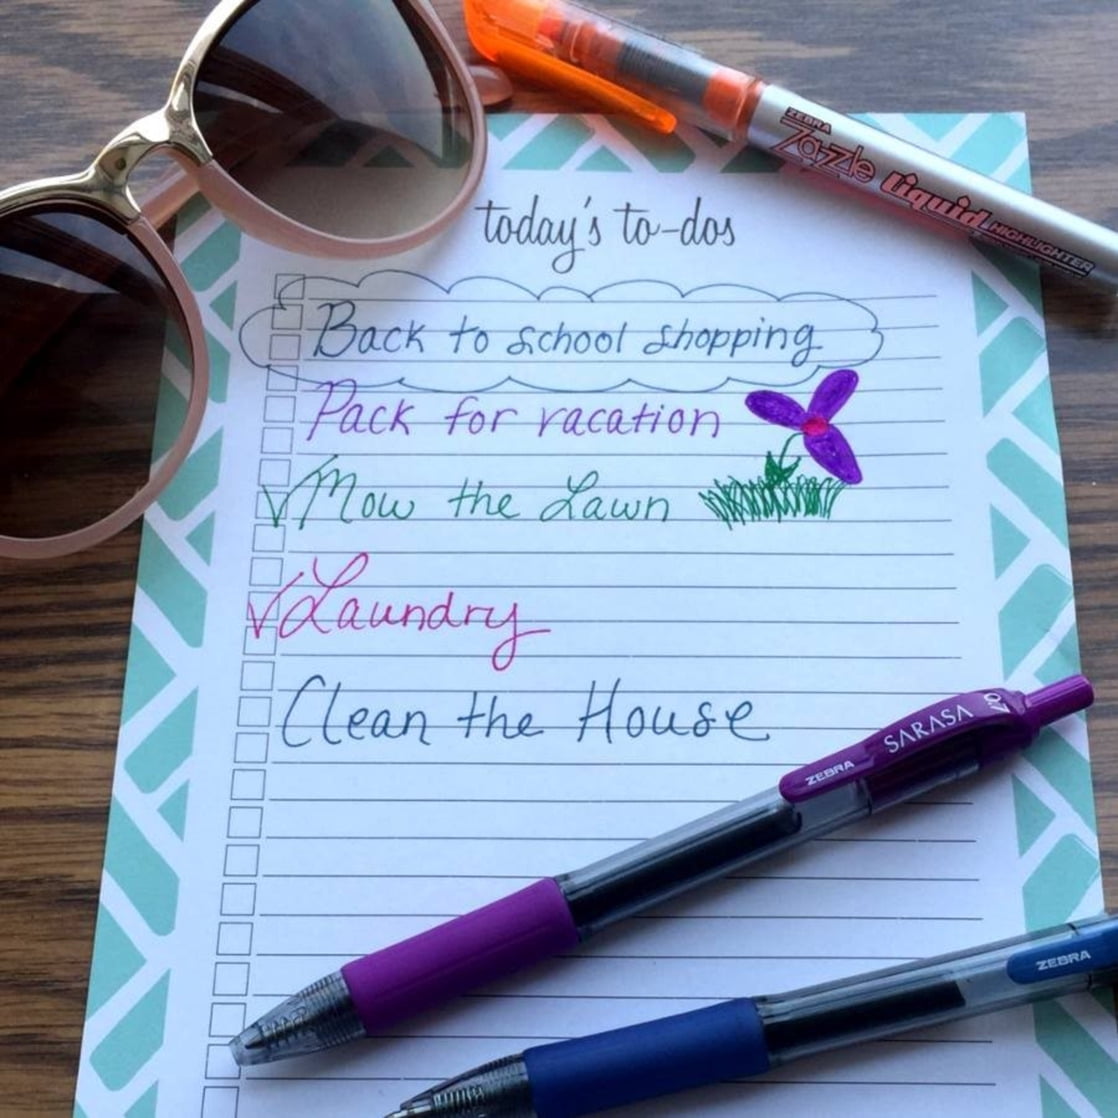 ZEBRA
Zazzle
Liquid HIGHLIGHTER
today's to-dos
Back to school shopping
Pack for vacation
Mow the Lawn
Laundry
Clean the House
ZEBRA SARASA 0.7
ZEBRA